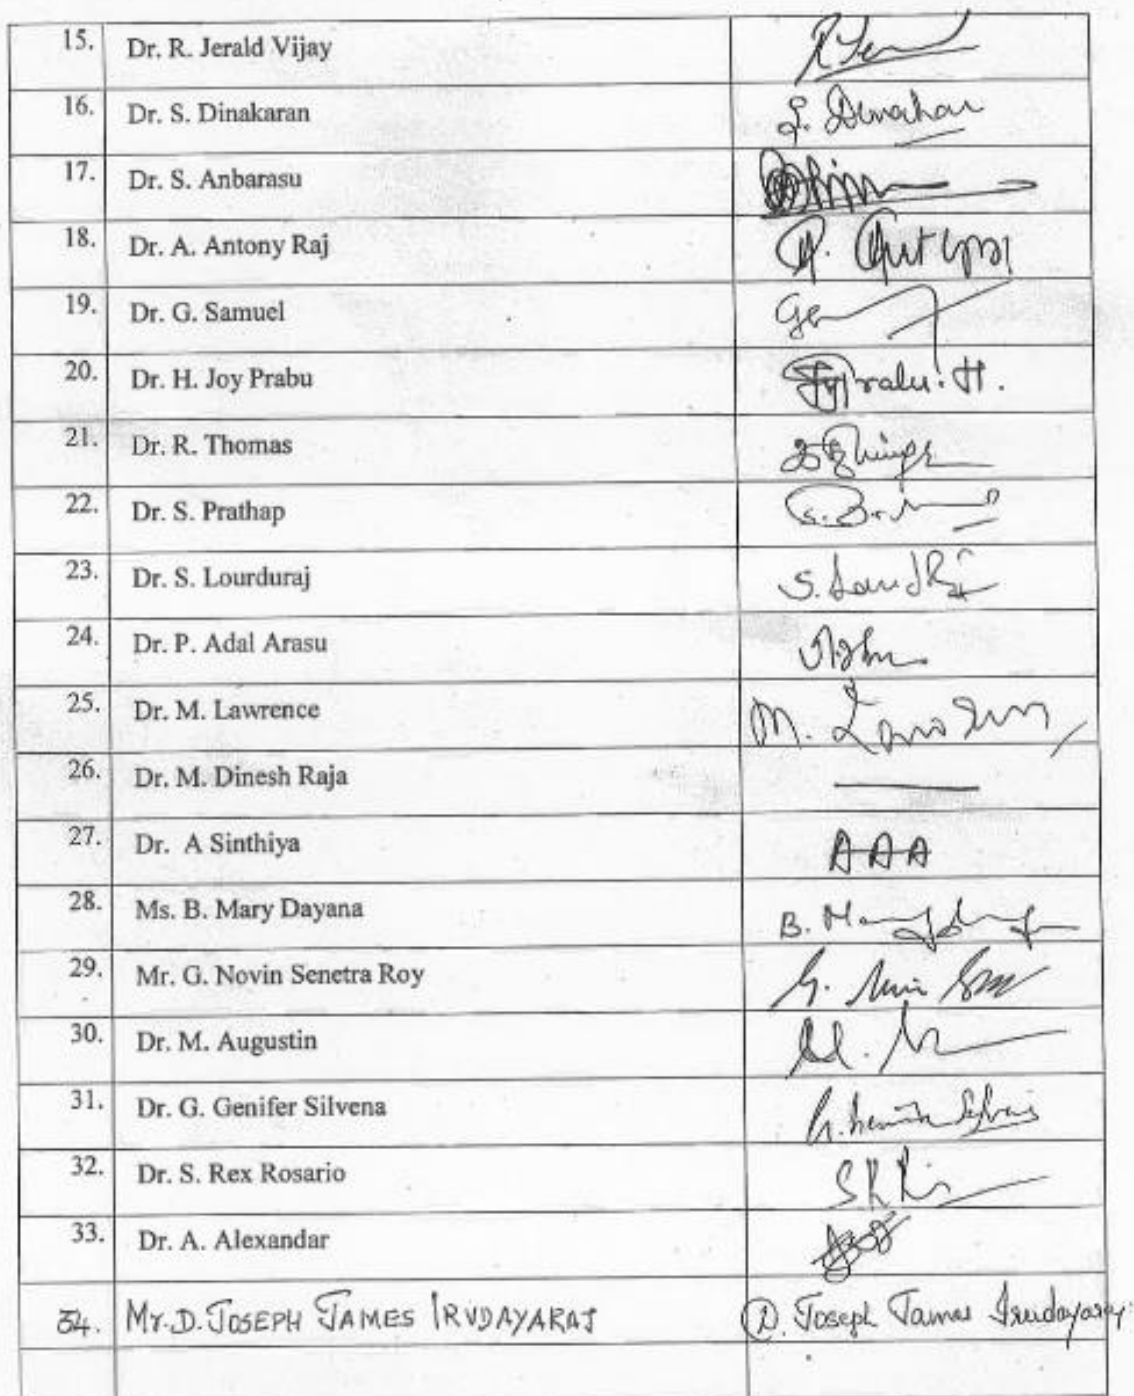 15. Dr. R. Jerald Vijay
16. Dr. S. Dinakaran S. Dinakar
17. Dr. S. Anbarasu
18. Dr. A. Antony Raj A.
19. Dr. G. Samuel
20. Dr. H. Joy Prabu Joy Prabu. H.
21. Dr. R. Thomas
22. Dr. S. Prathap S.
23. Dr. S. Lourduraj S.
24. Dr. P. Adal Arasu
25. Dr. M. Lawrence M.
26. Dr. M. Dinesh Raja
27. Dr. A Sinthiya
28. Ms. B. Mary Dayana B.
29. Mr. G. Novin Senetra Roy G.
30. Dr. M. Augustin M.
31. Dr. G. Genifer Silvena G.
32. Dr. S. Rex Rosario
33. Dr. A. Alexandar
34. Mr. D. JOSEPH JAMES IRUDAYARAJ D. Joseph James Irudayaraj